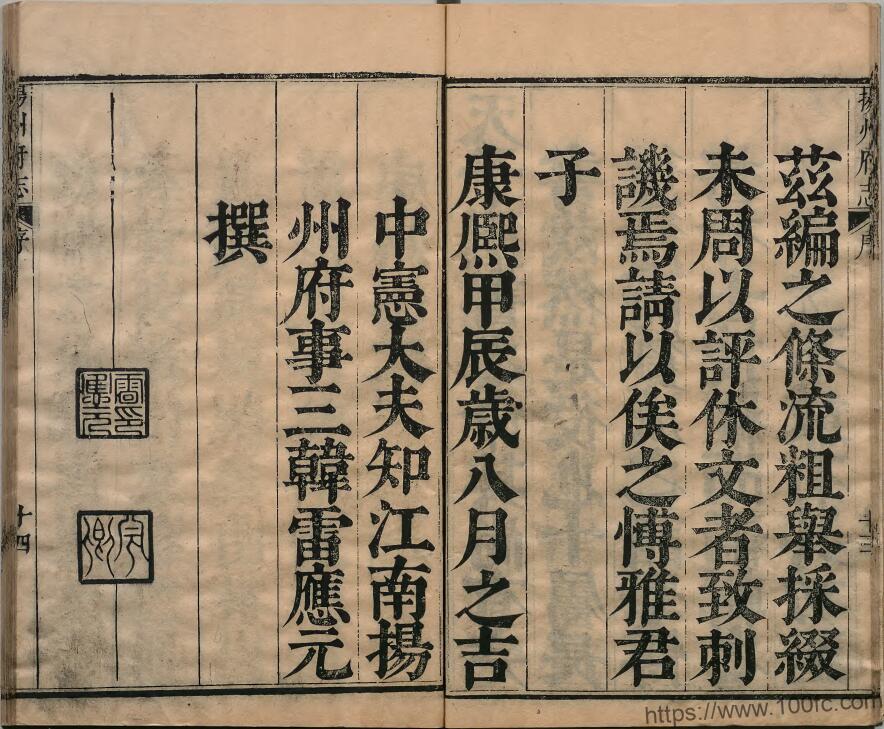 茲編之條流粗舉採綴
未周以評休文者致刺
譏焉請以俟之博雅君
子
康熙甲辰歲八月之吉
中憲大夫知江南揚
州府事三韓雷應元
撰
揚州府志
序
十三
揚州府志
序
十四
雷應元印
https://www.100fc.com